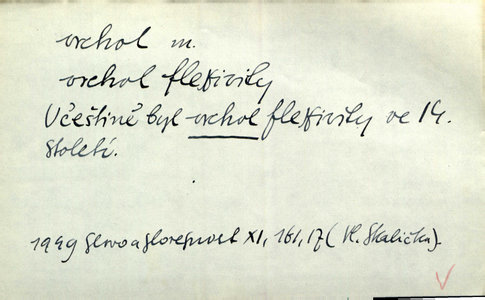 vrchol m.
vrchol flexivity
V češtině byl vrchol flexivity ve 14.
století.
1949 Slovo a slovesnost XI, 161, 17 (Vl. Skalička).
V